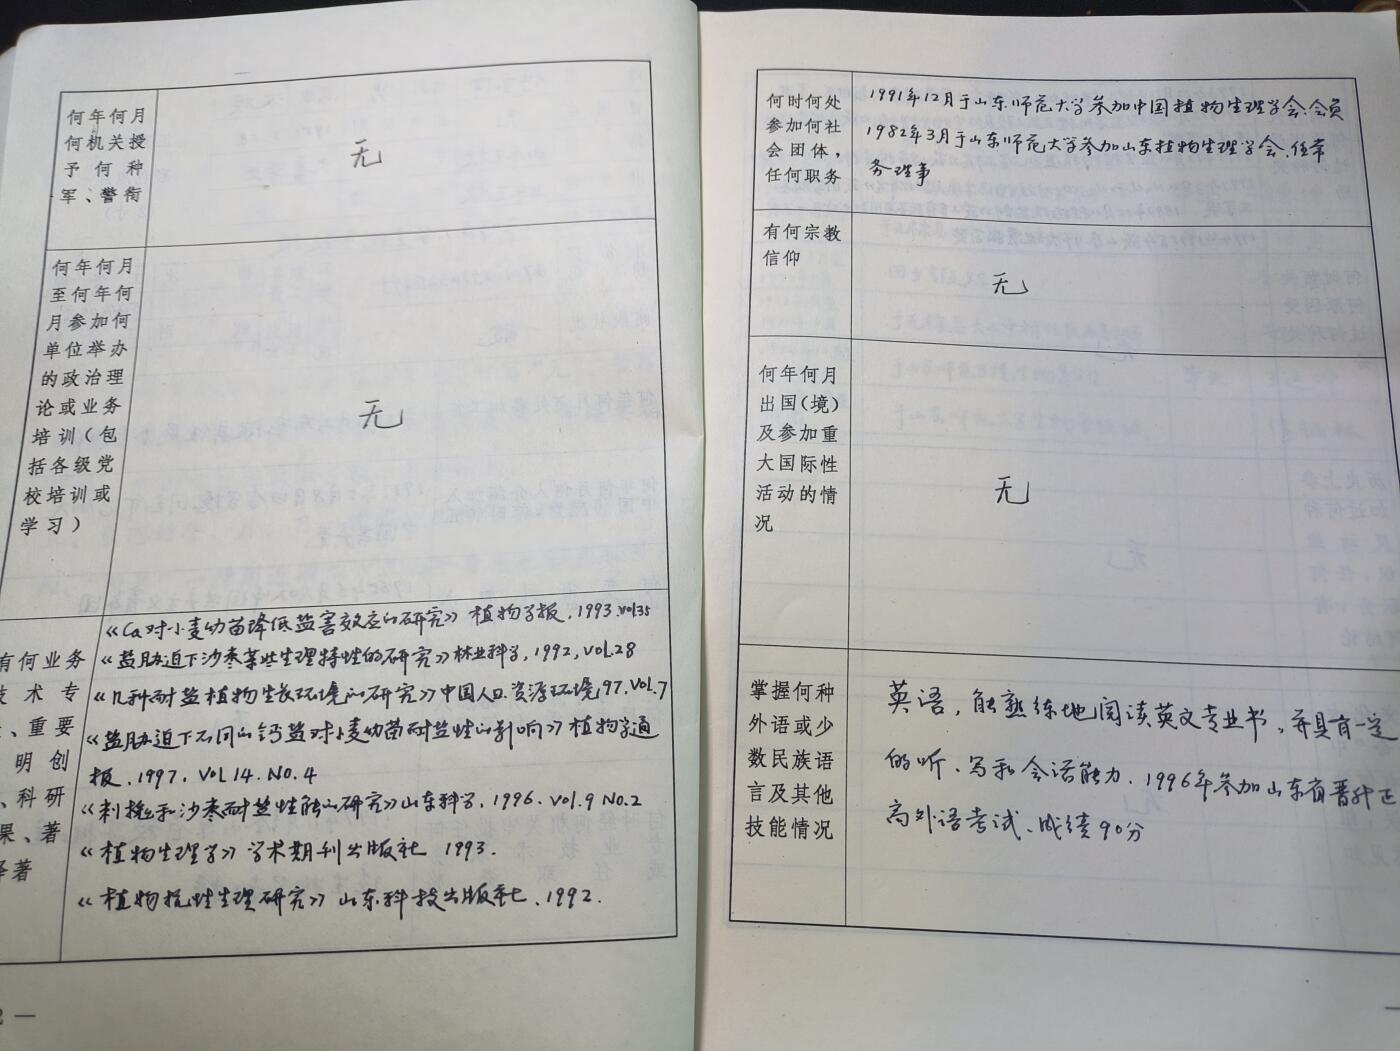 何年何月
何机关授
予何种
军、警衔
无
何年何月
至何年何
月参加何
单位举办
的政治理
论或业务
培训(包
括各级党
校培训或
学习)
无
有何业务
技术专
、重要
明创
、科研
果、著
译著
《Ca对小麦幼苗降低盐害效应的研究》植物学报.1993.vol35
《盐胁迫下沙枣某些生理特性的研究》林业科学,1992,vol.28
《几种耐盐植物生长环境的研究》中国人口.资源环境97.vol.7
《盐胁迫下不同的钙盐对小麦幼苗耐盐性的影响》植物学通
报.1997.VOL14.NO.4
《刺槐和沙枣耐盐性能的研究》山东科学.1996.vol.9 No.2
《植物生理学》学术期刊出版社 1993.
《植物抗性生理研究》山东科技出版社.1992.
2 —
何时何处
参加何社
会团体,
任何职务
1991年12月于山东师范大学参加中国植物生理学会.会员
1982年3月于山东师范大学参加山东植物生理学会.任常
务理事
有何宗教
信仰
无
何年何月
出国(境)
及参加重
大国际性
活动的情
况
无
掌握何种
外语或少
数民族语
言及其他
技能情况
英语,能熟练地阅读英文专业书,并具有一定
的听、写和会话能力.1996年参加山东省晋升正
高外语考试、成绩90分